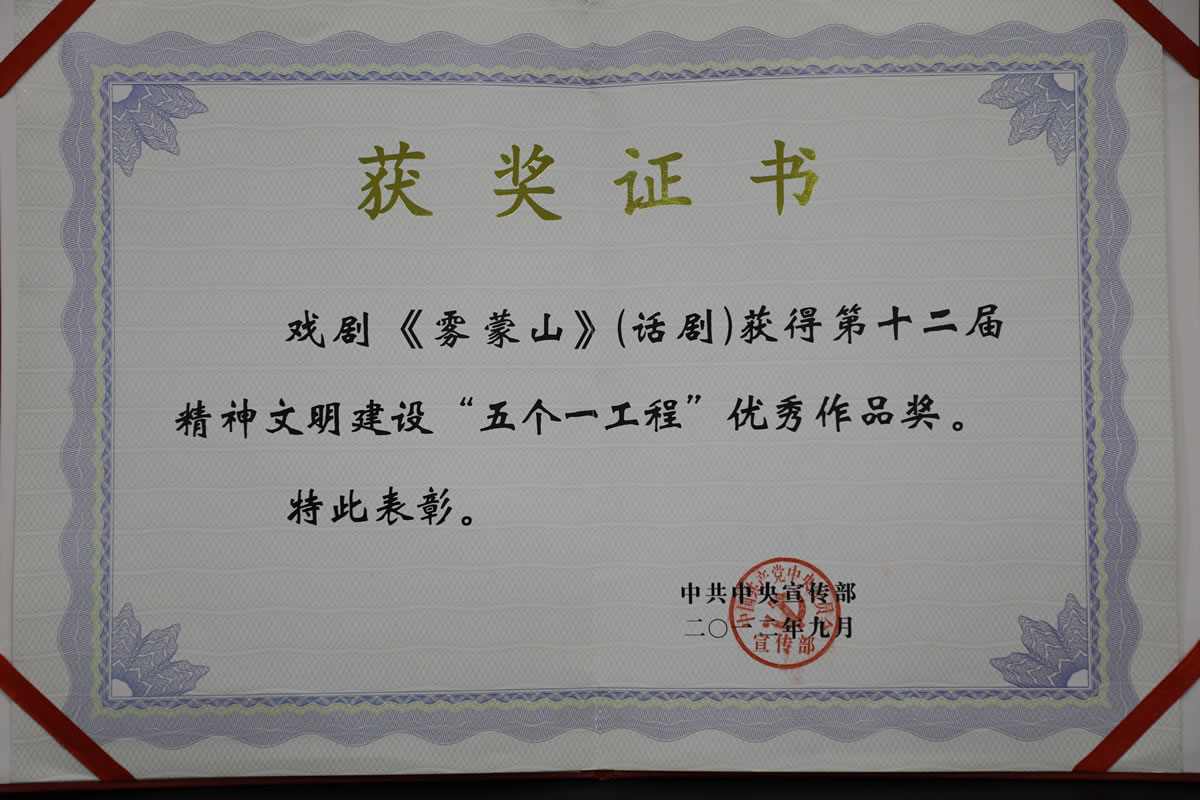 获奖证书
戏剧《雾蒙山》(话剧)获得第十二届
精神文明建设“五个一工程”优秀作品奖。
特此表彰。
中共中央宣传部
二〇一二年九月
中国共产党中央委员会
宣传部